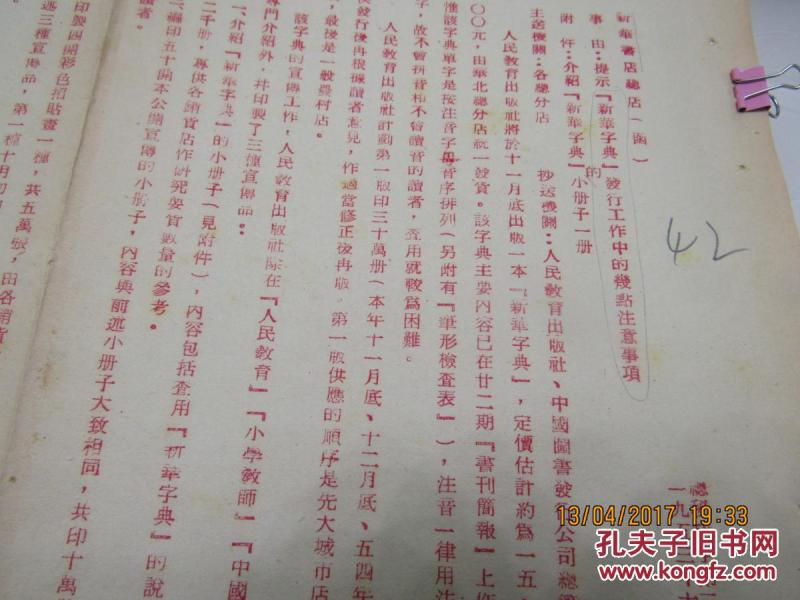 新華書店總店（函）
事由：提示『新華字典』發行工作中的幾點注意事項
附件：介紹『新華字典』的小册子一册
主送機關：各總分店
抄送機關：人民教育出版社、中國圖書發行公司總
人民教育出版社將於十一月底出版一本『新華字典』，定價估計約爲一五
〇〇元，由華北總分店統一發貨。該字典主要內容已在廿二期『書刊簡報』上
惟該字典單字是按注音字母音序排列（另附有『筆形檢查表』），注音一律用
字，故不會拼音和不會讀音的讀者，查用就較爲困難。
人民教育出版社計劃第一版印三十萬册（本年十一月底、十二月底、五四年
次發行後再根據讀者意見，作適當修正後再版。第一版供應的順序是先大城市店
，最後是一般農村店。
該字典的宣傳工作，人民教育出版社除在『人民教育』『小學教師』『中國
專門介紹外，并印製了三種宣傳品：
一、介紹『新華字典』的小册子（見附件），內容包括查用『新華字典』的說
二千册，專供各銷貨店作研究要貨數量的參考。
二、編印五十開本公開宣傳的小册子，內容與前述小册子大致相同，共印十萬
讀者。
印製四開彩色招貼畫一種，共五萬張，由各銷貨
述三種宣傳品，第一種十月初
總科
一九五三
42
13/04/2017 19:33
孔夫子旧书网
www.kongfz.com